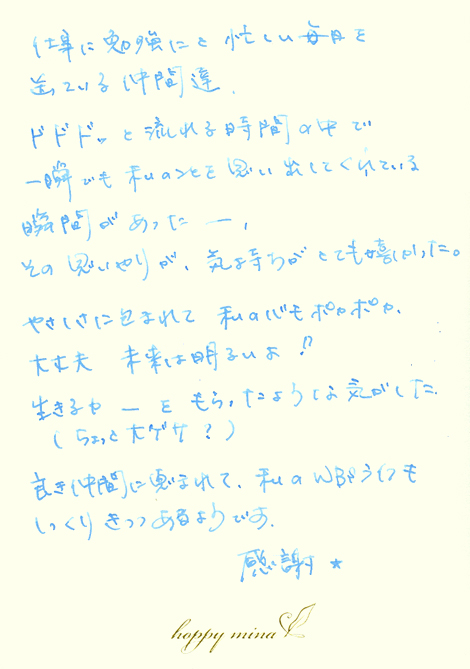 仕事に勉強にと忙しい毎日を
送っている仲間達、
ドドドッと流れる時間の中で
一瞬でも私のことを思い出してくれている
瞬間があったー、
その思いやりが、気持ちがとても嬉しかった。
やさしさに包まれて 私の心もポカポカ、
大丈夫 未来は明るいよ!!
生きる力 ーを もらったような気がした
(ちょっと大ゲサ?)
良き仲間に恵まれて、私のWBSライフも
しっくりきつつあるようです。
感謝★
happy mina